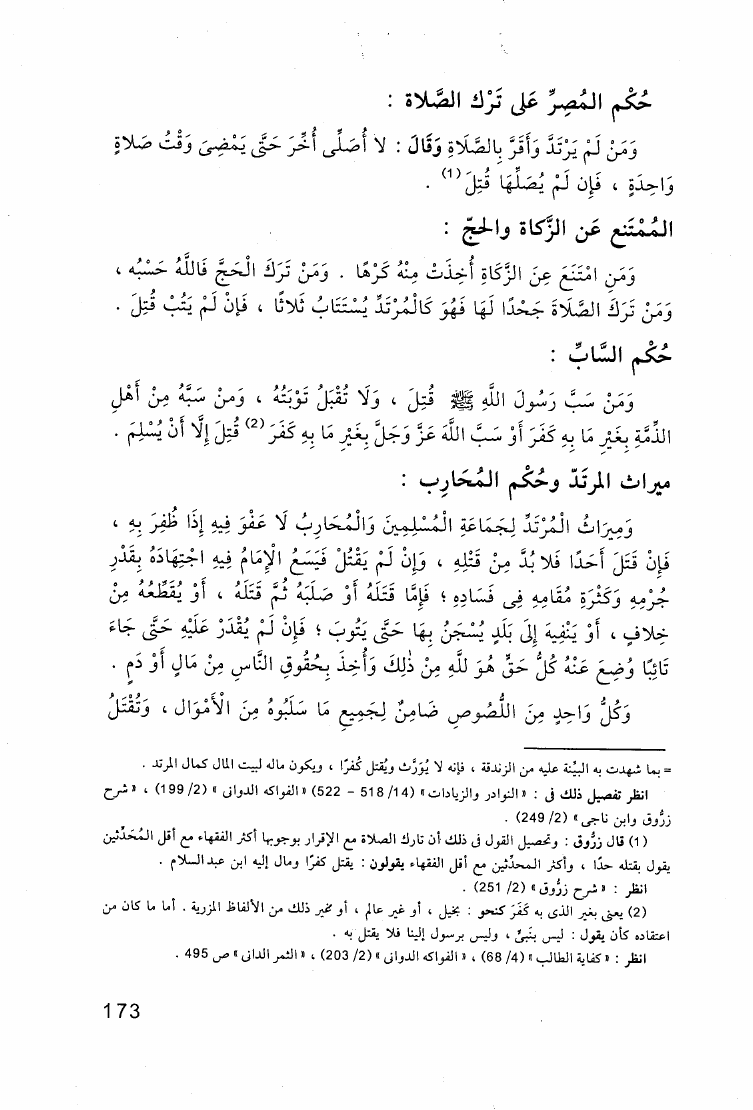 حُكْم المُصِرِّ عَلى تَرْك الصَّلاة :
وَمَنْ لَمْ يَرْتَدَّ وَأَقَرَّ بِالصَّلَاةِ وَقَالَ : لا أُصَلِّى أُخِّرَ حَتَّى يَمْضِىَ وَقْتُ صَلاةٍ
وَاحِدَةٍ ، فَإِن لَمْ يُصَلِّهَا قُتِلَ(1) .
المُمْتَنع عَن الزَّكاة والحجّ :
وَمَنِ امْتَنَعَ عِنَ الزَّكَاةِ أُخِذَتْ مِنْهُ كَرْهًا . وَمَنْ تَرَكَ الْحَجَّ فَاللَّهُ حَسْبُه ،
وَمَنْ تَرَكَ الصَّلَاةَ جَحْدًا لَهَا فَهُوَ كَالْمُرْتَدِّ يُسْتَتَابُ ثَلاثًا ، فَإِنْ لَمْ يَتُبْ قُتِلَ .
حُكْم السَّابِّ :
وَمَنْ سَبَّ رَسُولَ اللَّهِ ﷺ قُتِلَ ، وَلَا تُقْبَلُ تَوْبَتُهُ ، وَمنْ سَبَّهُ مِنْ أَهْلِ
الذِّمَّةِ بِغَيْرِ مَا بِهِ كَفَرَ أَوْ سَبَّ اللَّهَ عَزَّ وَجَلَّ بِغَيْرِ مَا بِهِ كَفَرَ(2) قُتِلَ إِلَّا أَنْ يُسْلِمَ .
ميراث المرتَدّ وحُكْم المُحَارِب :
وَمِيرَاثُ الْمُرْتَدِّ لِجَمَاعَةِ الْمُسْلِمِينَ وَالْمُحَارِبُ لَا عَفْوَ فِيهِ إِذَا ظُفِرَ بِهِ ،
فَإِنْ قَتَلَ أَحَدًا فَلا بُدَّ مِنْ قَتْلِهِ ، وَإِنْ لَمْ يَقْتُلْ فَيَسَعُ الْإِمَامُ فِيهِ اجْتِهَادَهُ بِقَدْرِ
جُرْمِهِ وَكَثْرَةِ مُقَامِهِ فِى فَسَادِهِ ؛ فَإِمَّا قَتَلَهُ أَوْ صَلَبَهُ ثُمَّ قَتَلَهُ ، أَوْ يُقَطِّعُهُ مِنْ
خِلافٍ ، أَوْ يَنْفِيهِ إِلَى بَلَدٍ يُسْجَنُ بِهَا حَتَّى يَتُوبَ ؛ فَإِنْ لَمْ يُقْدَرْ عَلَيْهِ حَتَّى جَاءَ
تَائِبًا وُضِعَ عَنْهُ كُلُّ حَقٍّ هُوَ للَّهِ مِنْ ذٰلِكَ وَأُخِذَ بِحُقُوقِ النَّاسِ مِنْ مَالٍ أَوْ دَمٍ .
وَكُلُّ وَاحِدٍ مِنَ اللُّصُوصِ ضَامِنٌ لِجَمِيعِ مَا سَلَبُوهُ مِنَ الْأَمْوَالِ ، وَتُقْتَلُ
= بما شهدت به البيِّنة عليه من الزندقة ، فإنه لا يُوَرَّث ويُقتل كُفرًا ، ويكون ماله لبيت المال كمال المرتد .
انظر تفصيل ذلك فى : « النوادر والزيادات » (14/ 518 - 522) « الفواكه الدوانى » (2/ 199) ، « شرح
زرُّوق وابن ناجى » (2/ 249) .
(1) قال زرُّوق : وتحصيل القول فى ذلك أن تارك الصلاة مع الإقرار بوجوبها أكثر الفقهاء مع أقل المُحَدِّثين
يقول بقتله حدًا ، وأكثر المحدِّثين مع أقل الفقهاء يقولون : يقتل كفرًا ومال إليه ابن عبد السلام .
انظر : « شرح زرُّوق » (2/ 251) .
(2) يعنى بغير الذى به كَفَرَ كنحو : بخيل ، أو غير عالم ، أو نحو ذلك من الألفاظ المزرية . أما ما كان من
اعتقاده كأن يقول : ليس بنبىٍّ ، وليس برسول إلينا فلا يقتل به .
انظر : « كفاية الطالب » (4/ 68) ، « الفواكه الدوانى » (2/ 203) ، « الثمر الدانى » ص 495 .
173